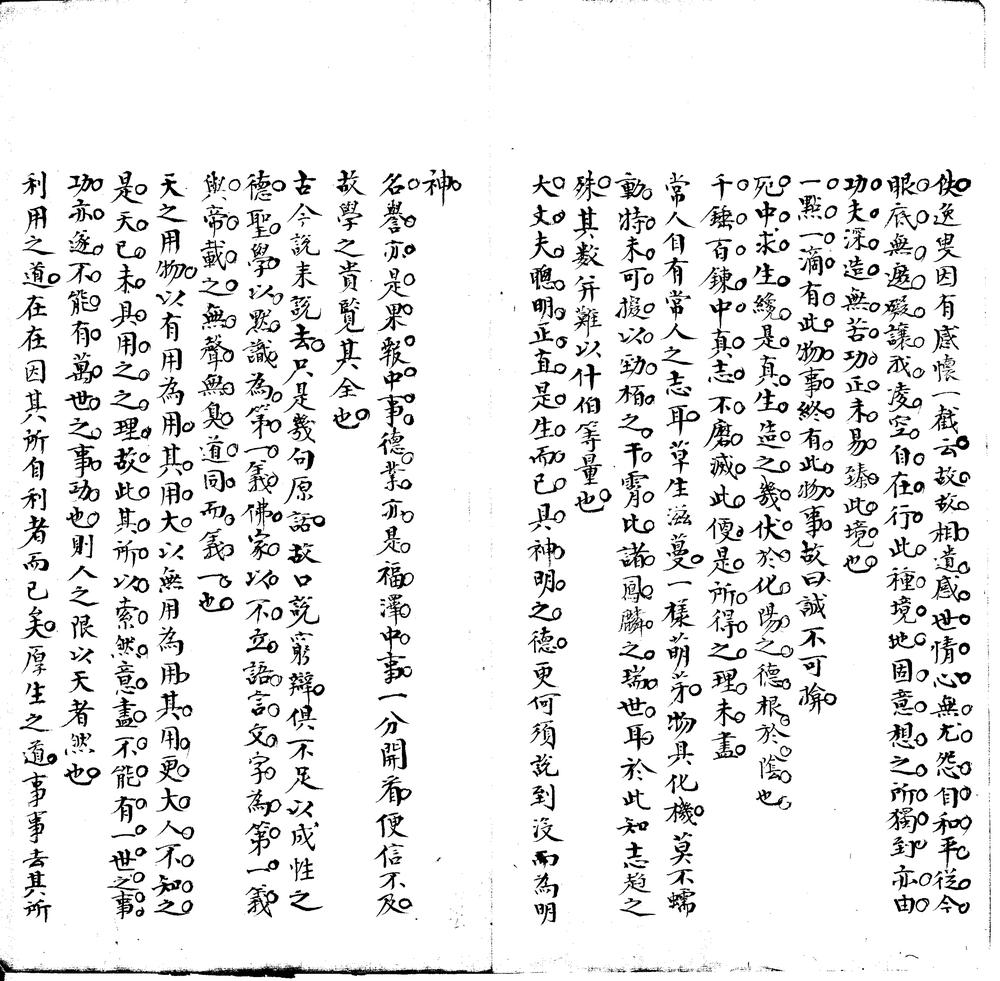 佚逸叟因有感懷一截云故故相遺感世情心無尤怨自和平從今
眼底無遮礙讓我凌空自在行此種境地固意想之所獨到亦由
功夫深造無苦功正未易臻此境也
一點一滴有此物事終有此物事故曰誠不可揜
死中求生纔是真生造之幾伏於化陽之德根於陰也
千錘百鍊中真志不磨滅此便是所得之理未盡
常人自有常人之志耳草生滋蔓一樣萌芽物具化機莫不蠕
動特未可援以勁栢之干霄比諸鳳麟之瑞世耳於此知志趨之
殊其數并難以什伯等量也
大丈夫聰明正直是生而已具神明之德更何須說到沒而為明
神
名譽亦是果報中事德業亦是福澤中事一分開看便信不及
故學之貴覽其全也
古今說來說去只是幾句原話故口說窮辯俱不足以成性之
德聖學以默識為第一義佛家以不立語言文字為第一義
與帝載之無聲無臭道同而義一也
天之用物以有用為用其用大以無用為用其用更大人不知之
是天已未具用之之理故此其所以索然意盡不能有一世之事
功亦遂不能有萬世之事功也則人之限以天者然也
利用之道在在因其所自利者而已矣厚生之道事事去其所